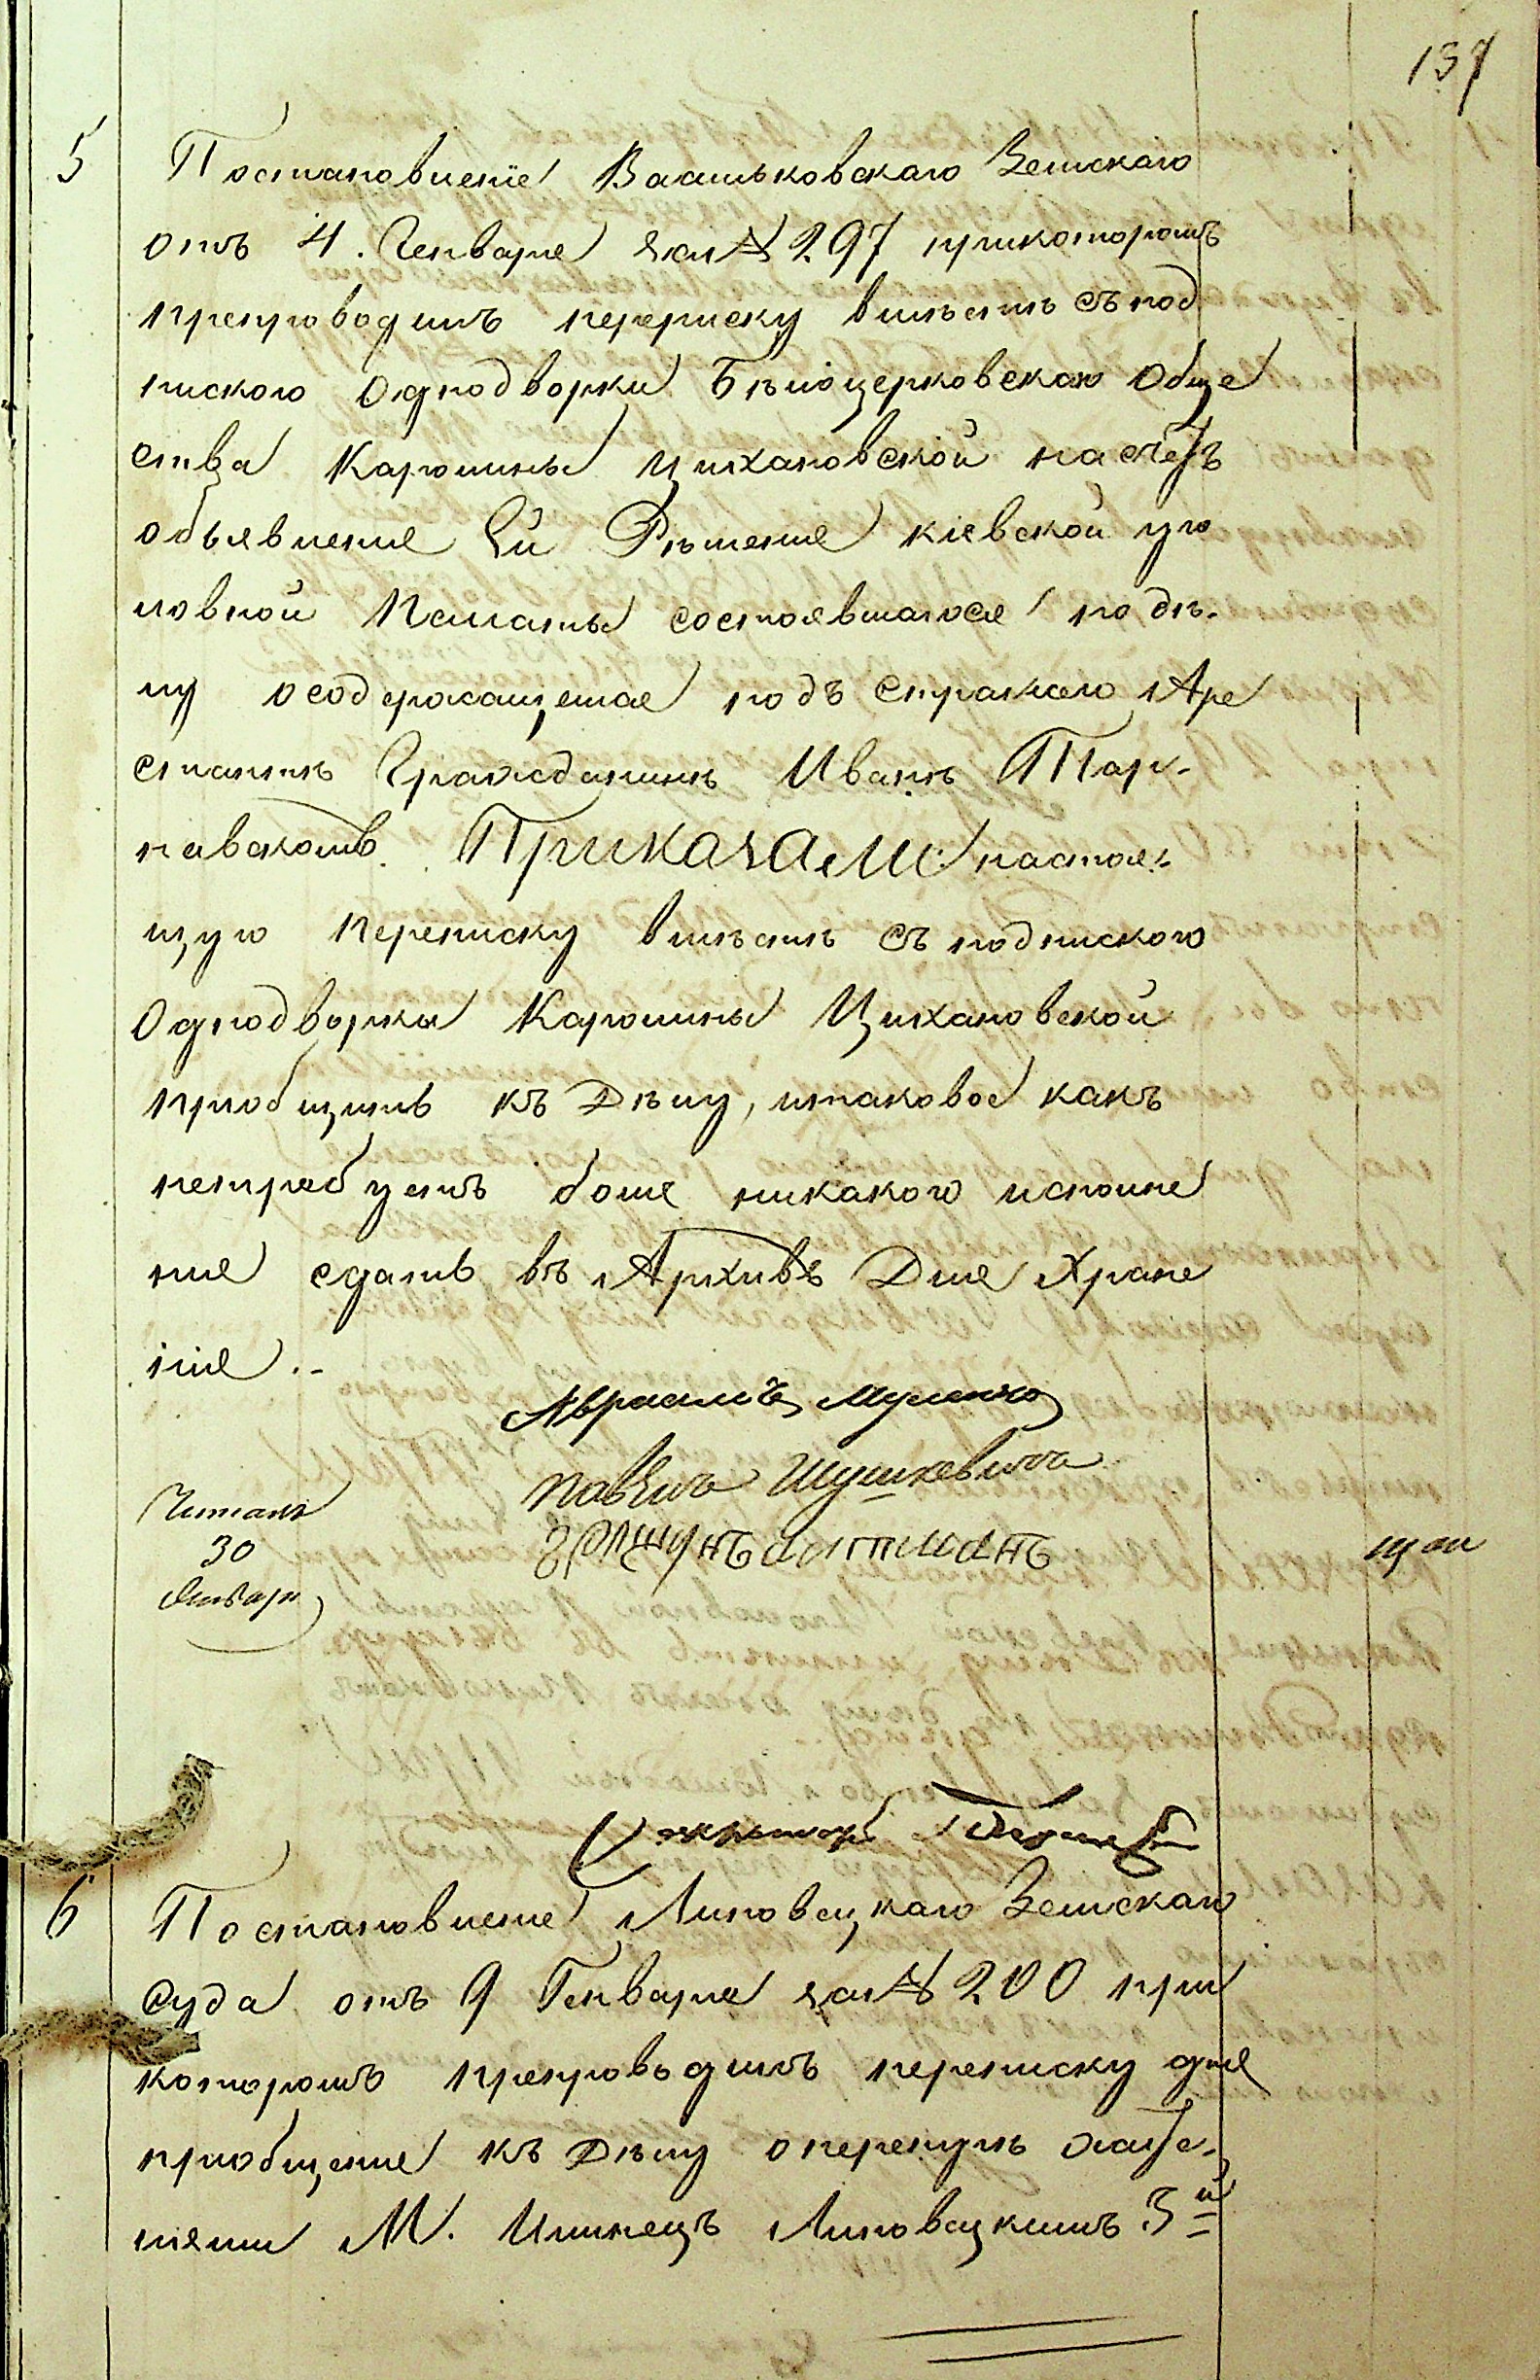 137
5
Постановленіе Васильковскаго Земскаго
отъ 4. Генваря за № 297 прикоторомъ
препроводилъ переписку вмѣстѣ съ под
пискою Однодворки Бѣлоцерковскаго Обще
ства Каролины Цихановской на счетъ
объявленія Ей Рѣшенія кіевской уго
ловной Палаты состоявшагося подѣ-
лу осодержащемся подъ стражею Аре
стантѣ Гражданинѣ Иванѣ Тар-
навскомъ. Приказали настоя-
щую переписку вмѣстѣ съ подпискою
Однодворки Каролины Цихановской
пріобщить къ Дѣлу, итаковое какъ
нетребуетъ болѣе никакого исполне
нія сдать въ Архивъ Для Хране
нія.-
Авраамъ
Павелъ Шушкевичъ
Читалъ
30
Января
Секретарь
6
Постановленіе Липовецкаго Земскаго
Суда отъ 9 Генваря за № 200 при
которомъ препроводилъ переписку для
пріобщенія къ Дѣлу о перекупѣ
М. Илинецъ Липовецкимъ 3й